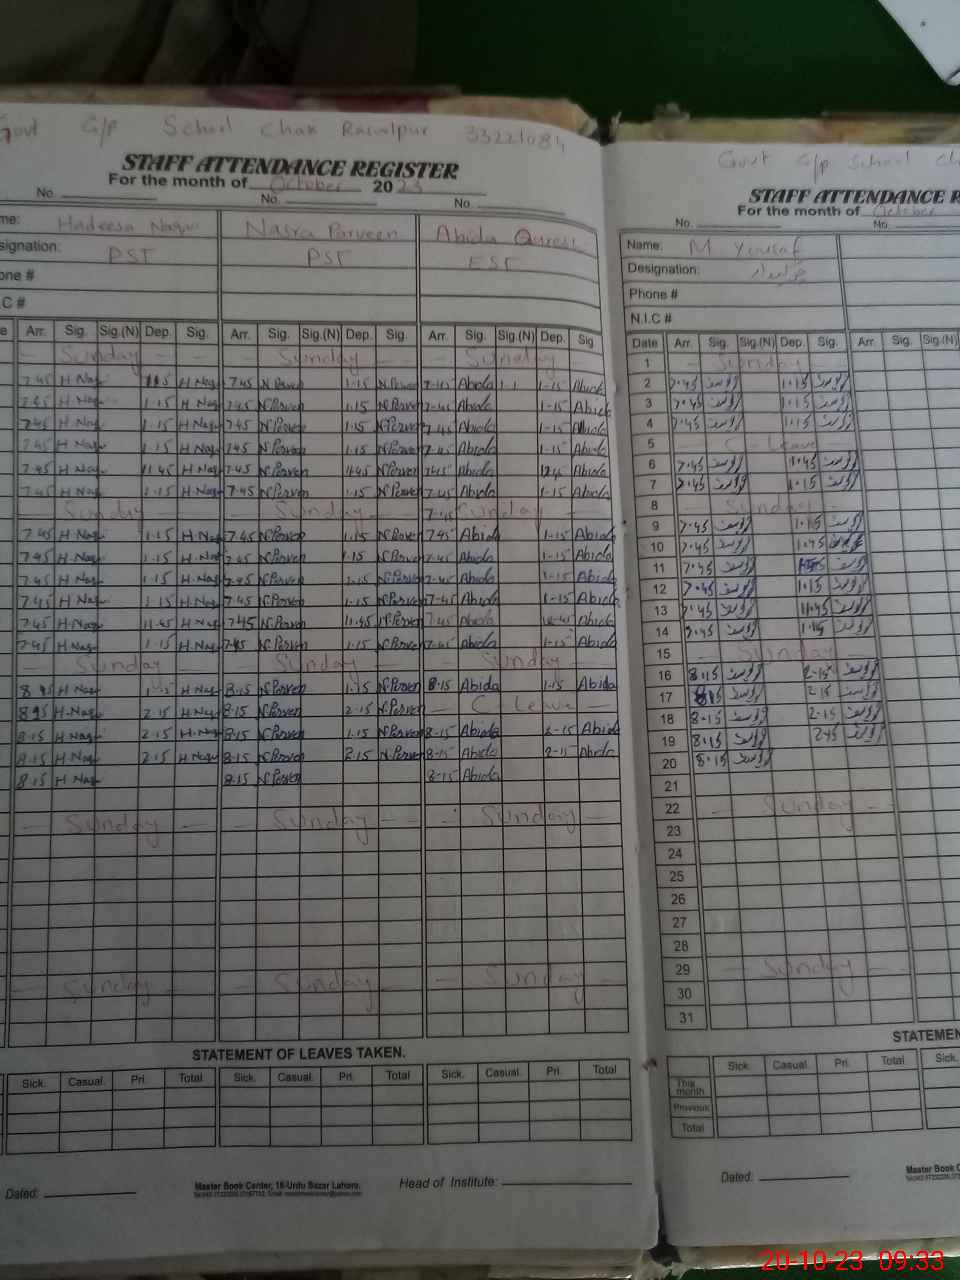 Govt G/p School Chak Rasulpur 33221084
STAFF ATTENDANCE REGISTER
For the month of October 2023
No. No. No.
me: Hadeesa Naqvi Nasra Parveen Abida Quresh
signation: PST PST EST
one #
C #
e Arr. Sig. Sig.(N) Dep. Sig. Arr. Sig. Sig.(N) Dep. Sig. Arr. Sig. Sig.(N) Dep. Sig
Sunday Sunday Sunday
7 45 H Naq 1 15 H Naq 7.45 N Perven 1.15 N Perven 7-45 Abida 1-15 Abida
7.45 H Naq 1.15 H Naq 7.45 N Perven 1.15 N Perven 7-45 Abida 1-15 Abida
7.45 H Naq 1.15 H Naq 7.45 N Perven 1.15 N Perven 7.45 Abida 1-15 Abida
7.45 H Naq 1.15 H Naq 7.45 N Perven 1.15 N Perven 7.45 Abida 1-15 Abida
7.45 H Naq 11.45 H Naq 7.45 N Perven 11.45 N Perven 7.45 Abida Abida
7.45 H Naq 1.15 H.Naq 7.45 N Perven 1.15 N Perven 7.45 Abida 1-15 Abida
Sunday Sunday 7-45 Sunday
7.45 H.Naq 1.15 H.Naq 7.45 N Perven 1.15 N Perven 7.45 Abida 1-15 Abida
7.45 H.Naq 1.15 H.Naq 7.45 N Perven 1.15 N Perven 7.45 Abida 1-15 Abida
7.45 H.Naq 1.15 H.Naq 7.45 N Perven 1.15 N Perven 7-45 Abida 1-15 Abida
7.45 H.Naq 1.15 H.Naq 7.45 N Perven 1-15 N Perven 7-45 Abida 1-15 Abida
7.45 H.Naq 11.45 H.Naq 7.45 N Perven 11.45 N Perven 7.45 Abida Abida
7.45 H.Naq 1.15 H.Naq 7.45 N Perven 1.15 N Perven 7.45 Abida 1-15 Abida
Sunday Sunday Sunday
H Naq H Naq 8.15 N Perven 1.15 N Perven 8.15 Abida 1.15 Abida
H.Naq 2.15 H.Naq 8.15 N Perven 2.15 N Perven C-Leave
8.15 H.Naq 2.15 H.Naq 8.15 N Perven 1.15 N Perven 8-15 Abida 2-15 Abida
8.15 H.Naq 2.15 H Naq 8.15 N Perven 2.15 N Perven 8-15 Abida 2-15 Abida
8.15 H Naq 8.15 N Perven 8-15 Abida
Sunday Sunday Sunday
Sunday Sunday Sunday
STATEMENT OF LEAVES TAKEN.
Sick. Casual. Pri. Total Sick. Casual. Pri. Total Sick. Casual. Pri. Total
Dated: Master Book Center, 16-Urdu Bazar Lahore. Head of Institute:
Govt G/p School Ch
STAFF ATTENDANCE R
For the month of October
No. No.
Name: M Yousaf
Designation: چوکیدار
Phone #
N.I.C #
Date Arr. Sig. Sig.(N) Dep. Sig. Arr. Sig. Sig.(N)
1 Sunday
2 7.45 یوسف 1.15 یوسف
3 7.45 یوسف 1.15 یوسف
4 7.45 یوسف 1.15 یوسف
5 C-Leave
6 7.45 یوسف 11.45 یوسف
7 7.45 یوسف 1.15 یوسف
8 Sunday
9 7.45 یوسف 1.15 یوسف
10 7.45 یوسف
11 7.45 یوسف یوسف
12 7.45 یوسف 1.15 یوسف
13 7.45 یوسف 11.45 یوسف
14 7.45 یوسف 1.15 یوسف
15 Sunday
16 8.15 یوسف 2-15 یوسف
17 یوسف 2.15 یوسف
18 8.15 یوسف 2.15 یوسف
19 8.15 یوسف 2.45 یوسف
20 8.15 یوسف
21
22 Sunday
23
24
25
26
27
28
29 Sunday
30
31
STATEMEN
Sick. Casual. Pri. Total Sick.
This month
Previous
Total
Dated: Master Book C
20-10-23 09:33